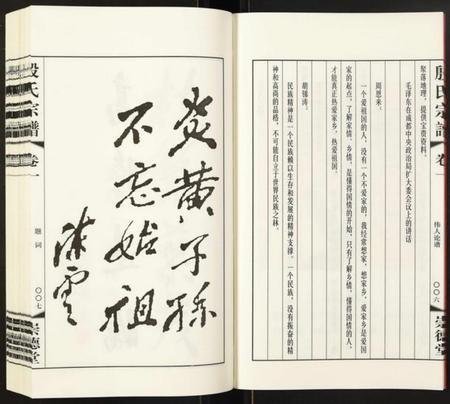 殷氏宗譜
卷一
伟人论谱
〇〇六
崇德堂
聚落地理，提供宝贵资料。
毛泽东在成都中央政治局扩大委会议上的讲话
周恩来：
一个爱祖国的人，没有一个不爱家的，我经常想家，想家乡，爱家乡是爱国
家的起点，了解家情、乡情，是懂得国情的开始，只有了解乡情，懂得国情的人，
才能真正热爱家乡，热爱祖国。
胡锦涛：
民族精神是一个民族赖以生存和发展的精神支撑。一个民族，没有振奋的精
神和高尚的品格，不可能自立于世界民族之林。
炎黄子孙
不忘始祖
陈云
殷氏宗譜
卷一
题词
〇〇七
崇德堂